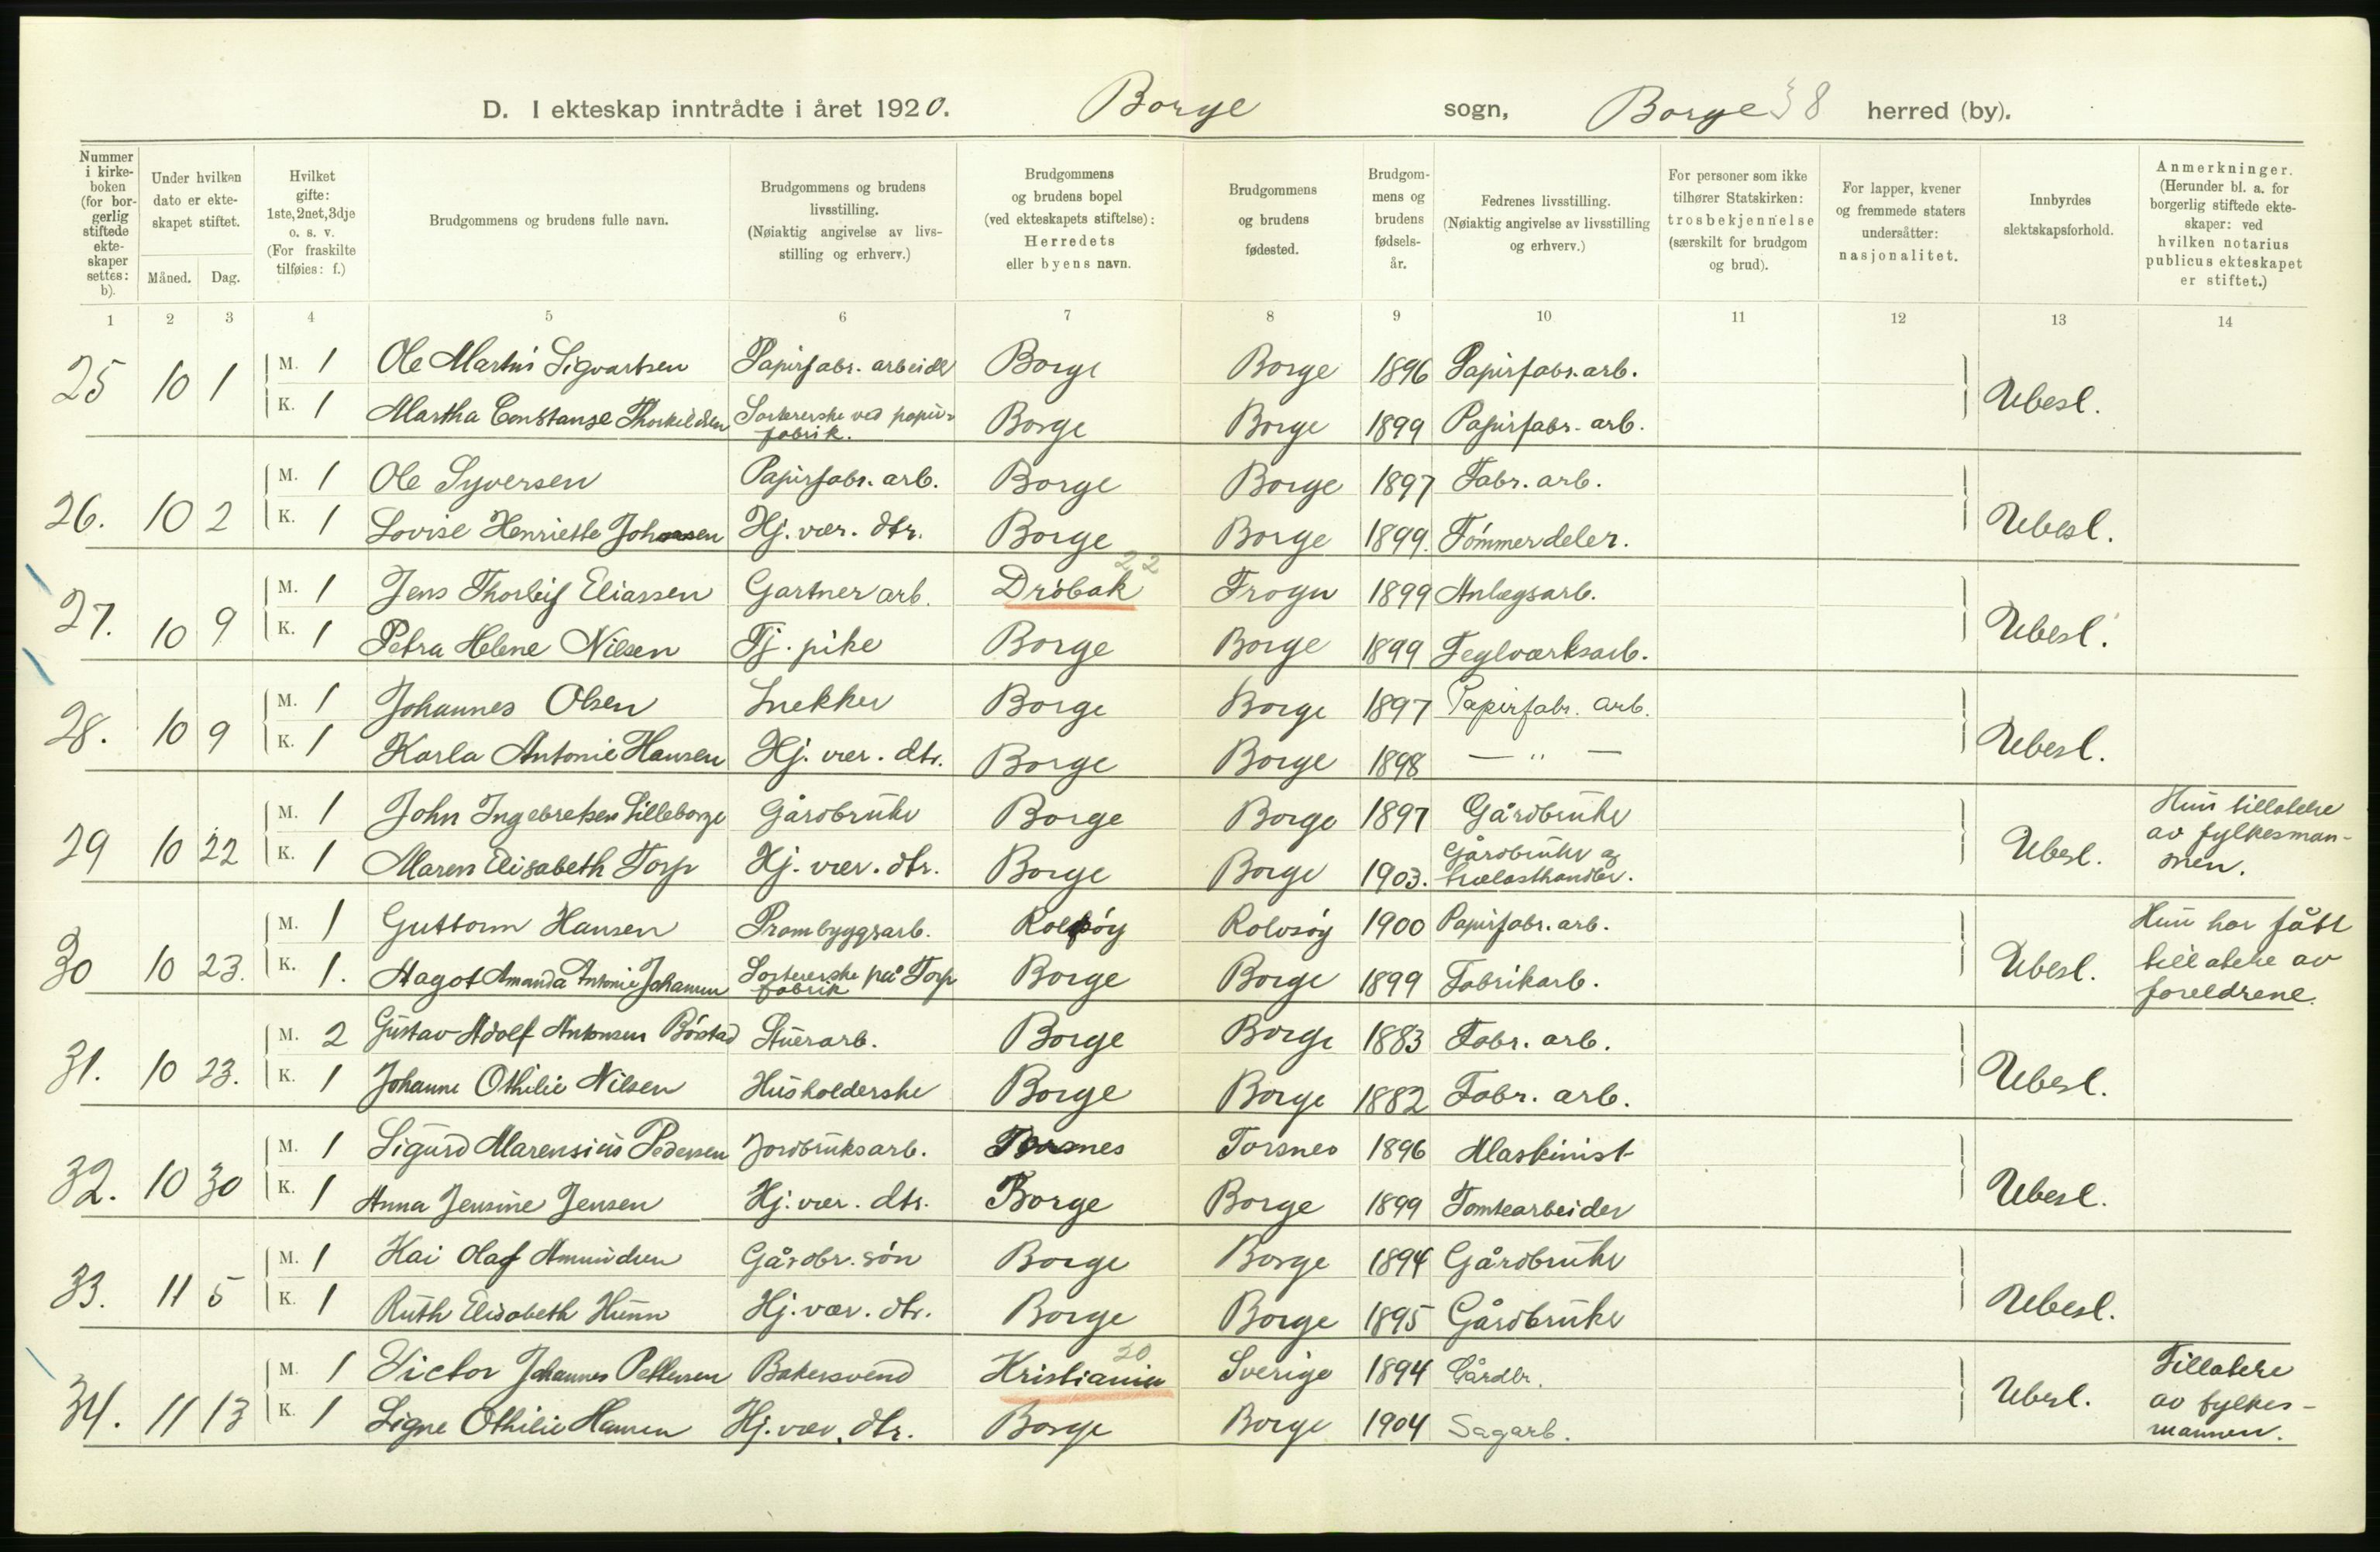 D. I ekteskap inntrådte i året 1920. Borge sogn, Borge 38 herred (by).
Nummer i kirke-boken (for bor-gerlig stiftede ekte-skaper settes: b).
Under hvilken dato er ekte-skapet stiftet.
Måned. Dag.
Hvilket gifte: 1ste, 2net, 3dje o. s. v. (For fraskilte tilføies: f.)
Brudgommens og brudens fulle navn.
Brudgommens og brudens livsstilling. (Nøiaktig angivelse av livs-stilling og erhverv.)
Brudgommens og brudens bopel (ved ekteskapets stiftelse): Herredets eller byens navn.
Brudgommens og brudens fødested.
Brudgom-mens og brudens fødsels-år.
Fedrenes livsstilling. (Nøiaktig angivelse av livsstilling og erhverv.)
For personer som ikke tilhører Statskirken: trosbekjennelse (særskilt for brudgom og brud).
For lapper, kvener og fremmede staters undersåtter: nasjonalitet.
Innbyrdes slektskapsforhold.
Anmerkninger. (Herunder bl. a. for borgerlig stiftede ekte-skaper: ved hvilken notarius publicus ekteskapet er stiftet.)
1 2 3 4 5 6 7 8 9 10 11 12 13 14
25 10 1 M. 1 Ole Martin Sigvartsen Papirfabr. arbeider Borge Borge 1896 Papirfabr. arb. Ubesl.
K. 1 Martha Constanse Thorkildsen Sortererske ved papir-fabrik. Borge Borge 1899 Papirfabr. arb.
26. 10 2 M. 1 Ole Syversen Papirfabr. arb. Borge Borge 1897 Fabr. arb. Ubesl.
K. 1 Lovise Henriette Johansen Hj. vær. dtr. Borge Borge 1899. Tømmerdeler.
27. 10 9 M. 1 Jens Thorleif Eliassen Gartnerarb. Drøbak 22 Frogn 1899 Anlegsarb. Ubesl.
K. 1 Petra Helene Nilsen Tj. pike Borge Borge 1899 Teglværksarb.
28. 10 9 M. 1 Johannes Olsen Snekker Borge Borge 1897 Papirfabr. arb. Ubesl.
K. 1 Karla Antonie Hansen Hj. vær. dtr. Borge Borge 1898 — " —
29 10 22 M. 1 John Ingebretsen Lilleborge Gårdbruker Borge Borge 1897 Gårdbruker Ubesl. Hun tillatelse av fylkesman-nen.
K. 1 Maren Elisabeth Torp Hj. vær. dtr. Borge Borge 1903. Gårdbruker og trælasthandler.
30 10 23. M. 1 Guttorm Hansen Prambyggsarb. Rolvsøy Rolvsøy 1900 Papirfabr. arb. Ubesl. Hun har fått tillatelse av foreldrene.
K. 1. Aagot Amanda Antonie Johansen Sortererske på Torp fabrik Borge Borge 1899 Fabrikarb.
31. 10 23. M. 2 Gustav Adolf Antonsen Bøstad Stuerarb. Borge Borge 1883 Fabr. arb. Ubesl.
K. 1 Johanne Othilie Nilsen Husholderske Borge Borge 1882 Fabr. arb.
32. 10 30 M. 1 Sigurd Marensius Pedersen Jordbruksarb. Torsnes Torsnes 1896 Maskinist Ubesl.
K. 1 Anna Jensine Jensen Hj. vær. dtr. Borge Borge 1899 Tomtearbeider
33. 11 5 M. 1 Kai Olaf Amundsen Gårdbr. søn Borge Borge 1894 Gårdbruker Ubesl.
K. 1 Ruth Elisabeth Hunn Hj. vær. dtr. Borge Borge 1895 Gårdbruker
34. 11 13 M. 1 Victor Johannes Pettersen Bakersvend Kristiania 20 Sverige 1894 Gårdbr. Ubesl. Tillatelse av fylkes-mannen.
K. 1 Signe Othilie Hansen Hj. vær. dtr. Borge Borge 1904 Sagarb.